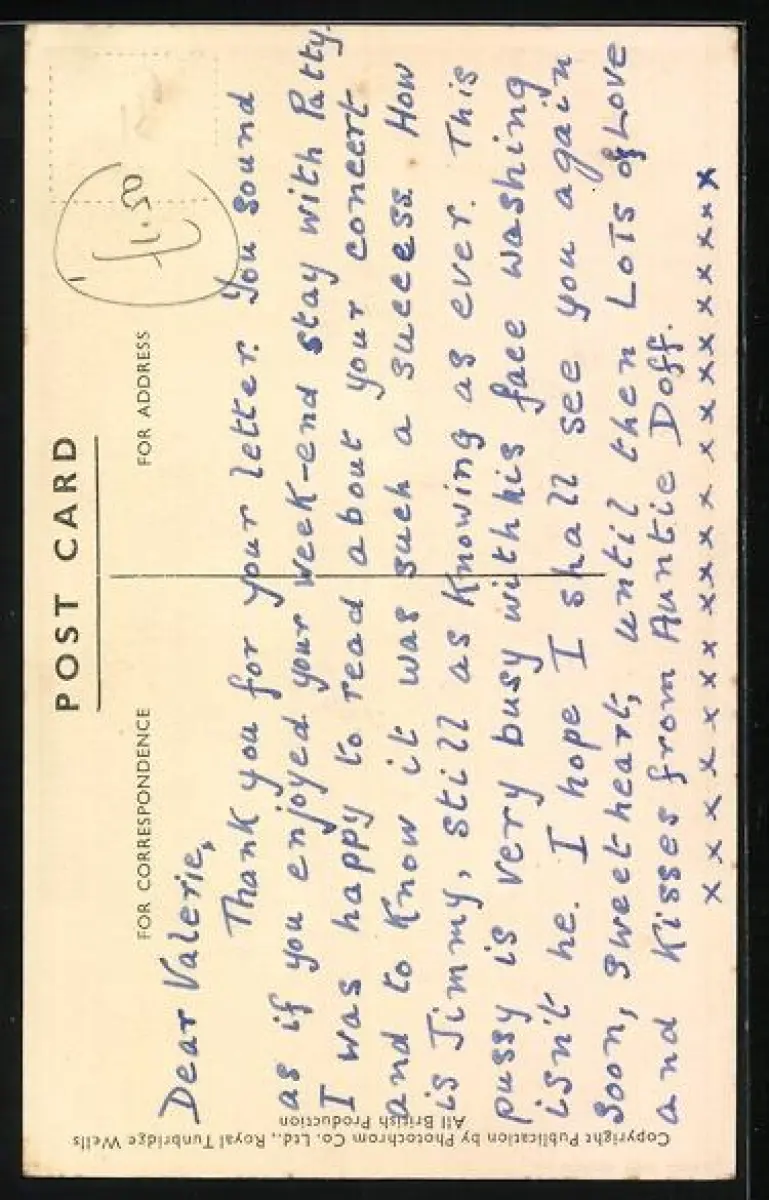 POST CARD
FOR CORRESPONDENCE
FOR ADDRESS
£1.50
Dear Valerie,
Thank you for your letter. You sound
as if you enjoyed your week-end stay with Patty.
I was happy to read about your concert
and to know it was such a success. How
is Jimmy, still as knowing as ever. This
pussy is very busy with his face washing
isn't he. I hope I shall see you again
soon, sweetheart, until then Lots of Love
and kisses from Auntie Doff.
x x x x x x x x x x x x x x x x x x
Copyright Publication by Photochrom Co. Ltd., Royal Tunbridge Wells
All British Production